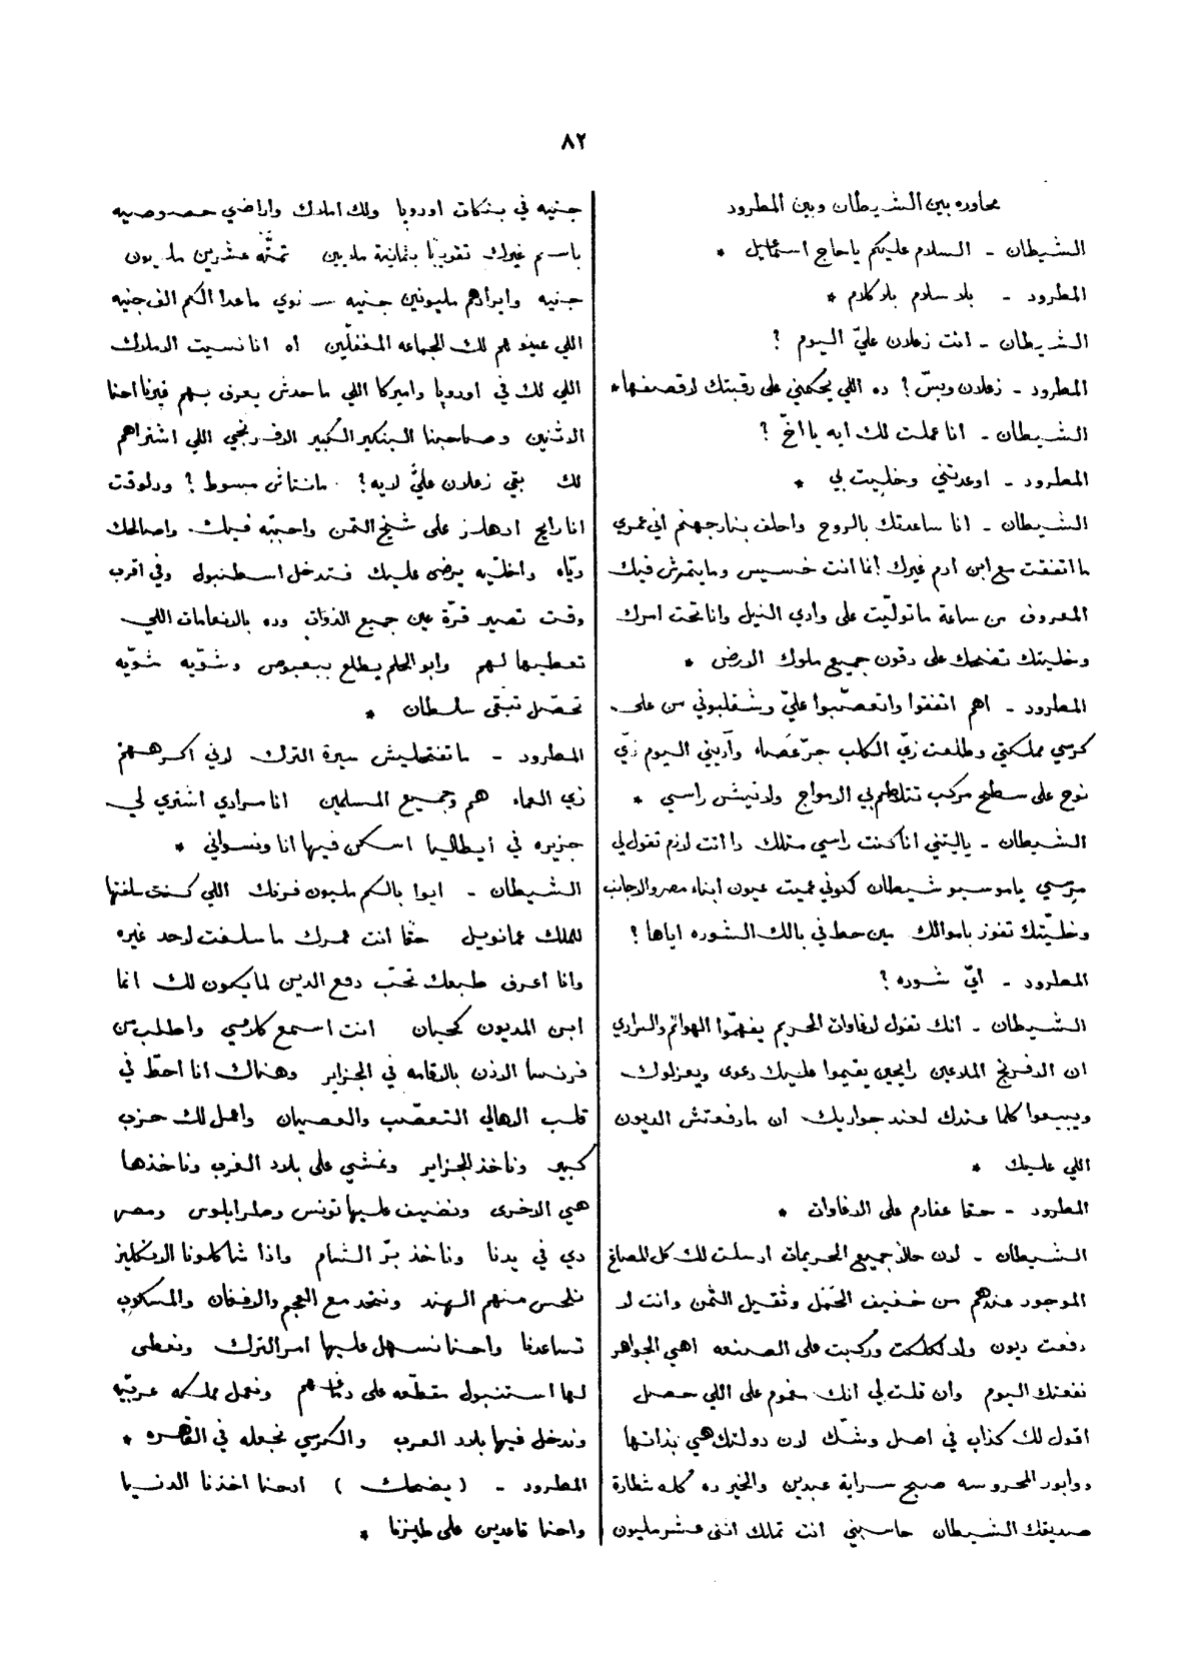 ٨٢
محاوره بين الشيطان وبين المطرود
الشيطان - السلام عليكم ياحاج اسمٰعيل *
المطرود - بلا سلام بلا كلام *
الشيطان - انت زعلان عليّ اليوم ؟
المطرود - زعلان وبسّ ؟ ده اللي يحكمني على رقبتك لاقصفها *
الشيطان - انا عملت لك ايه يا اخّ ؟
المطرود - اوعدتني وخليت بي *
الشيطان - انا ساعدتك بالروح واحلف بنار جهنم اني عمري
ما اتفقت مع ابن ادم غيرك انما انت خسيس وما يتمرش فيك
المعروف من ساعة ما تولّيت على وادي النيل وانا تحت امرك
وخليتك تضحك على دقون جميع ملوك الارض *
المطرود - اهم اتفقوا واتعصّبوا عليّ وشقلبوني من على
كرسي مملكتي وطلعت زيّ الكلب جرّ عصاه وآديني اليوم زيّ
نوح على سطيح مركب تتلاطم بي الامواج ولا نيش راسي *
الشيطان - ياليتني انا كنت راسي متلك دا انت لازم تقول لي
مرسي يا موسيو شيطان كوني عميت عيون ابناء مصر والاجانب
وخليّتك تفوز باموالك مين حط في بالك الشوره اياها ؟
المطرود - أيّ شوره ؟
الشيطان - انك تقول لاغاوات الحريم يفهمّوا الهوانم والسراري
ان الافرنج المدعين رايحين يقيموا عليك دعوى ويعزلوك
ويبيعوا كلما عندك لعند جواريك ان ما دفعتش الديون
اللي عليك *
المطرود - حقا عفارم على الاغاوات *
الشيطان - لان حالاً جميع الحريمات ارسلت لك كل المصاغ
الموجود عندهم من خفيف الحَمَل وثقيل الثمن وانت لا
دفعت ديون ولا لكلكت وركبت على الصنعه اهي الجواهر
نفعتك اليوم وان قلت لي انك مغموم على اللي حصل
اقول لك كذاب في اصل وشّك لان دولتك هي بذاتها
دوابور المحروسه صبح سراية عبدين والخير ده كله شطارة
صديقك الشيطان حاسبني انت تملك اثنى عشر مليون
جنيه في بنكات اوروبا ولك املاك واراضي خصوصيه
باسم غيرك تقويبًا بثمانية ملايين تمتّه عشرين مليون
جنيه وايرادهم مليونين جنيه سنوي ماعدا الكم الف جنيه
اللي عينوهم لك الجماعه المغفلّين اه انا نسيت الاملاك
اللي لك في اوروپا واميركا اللي ماحدش يعرف بهم غيرنا احنا
الاثنين وصاحبنا البنكير الكبير الافرنجي اللي اشتراهم
لك بقي زعلان عليّ لايه ؟ مانتاش مبسوط ؟ ودلوقت
انا رايح ادهلز على شيخ التمن واحببّه فيك واصالحك
ويّاه واخليّه يرضى عليك فتدخل اسطنبول وفي اقرب
وقت تصير قرّة عين جميع الذوات وده بالانعامات اللي
تعطيها لهم وابو الحلم يطلع ببعبوص وشويّه شويّه
تحصّل تبقى سلطان *
المطرود - ما تفتحليش سيرة الترك لاني اكرههم
زي العماء هم وجميع المسلمين انا مرادي اشتري لي
جزيره في ايطاليا اسكن فيها انا ونسواني *
الشيطان - ايوا بالكم مليون فرنك اللي كنت سلفتها
للملك عمانويل حقا انت عمرك ما سلفت لاحد غيره
وانا اعرف طبعك تحبّ دفع الدين لما يكون لك انما
ابن المديون كحيان انت اسمع كلامي واطلب من
فرنسا الاذن بالاقامه في الجزاير وهناك انا احطّ في
قلب الاهالي التعصّب والعصيان واعمل لك حزب
كبير وناخذ الجزاير ونمشي على بلاد الغرب وناخذها
هي الاخرى ونضيف عليها تونس وطرابلوس ومصر
دي في يدنا وناخذ برّ الشام واذا شاكلونا الانكليز
نلحس منهم الهند ونتحد مع العجم والافغان والمسكوب
تساعدنا واحنا نسهل عليها امر الترك ونعطى
لها استنبول مقطّعه على دماغهم ونعمل مملكه عربيّه
وندخل فيها بلاد العرب والكرسي نجعله في القاهره *
المطرود - ( يضحك ) ادحنا اخذنا الدنيا
واحنا قاعدين على طيزنا *